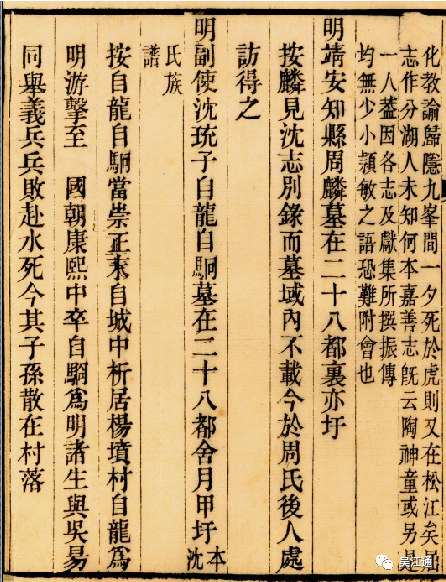 化教諭歸隱九峯間一夕死於虎則又在松江矣
志作分湖人未知何本嘉善志既云陶神童或另是
一人葢因各志及獻集所撰振傳
均無少小頴敏之語恐難附會也
明靖安知縣周麟墓在二十八都裏亦圩
按麟見沈志別錄而墓域內不載今於周氏後人處
訪得之
明副使沈珫子自龍自駉墓在二十八都舍月甲圩本沈
氏族
譜
按自龍自駉當崇正末自城中析居楊墳村自龍爲
明游擊至 國朝康熙中卒自駉爲明諸生與吳易
同舉義兵兵敗赴水死今其子孫散在村落
吴江通